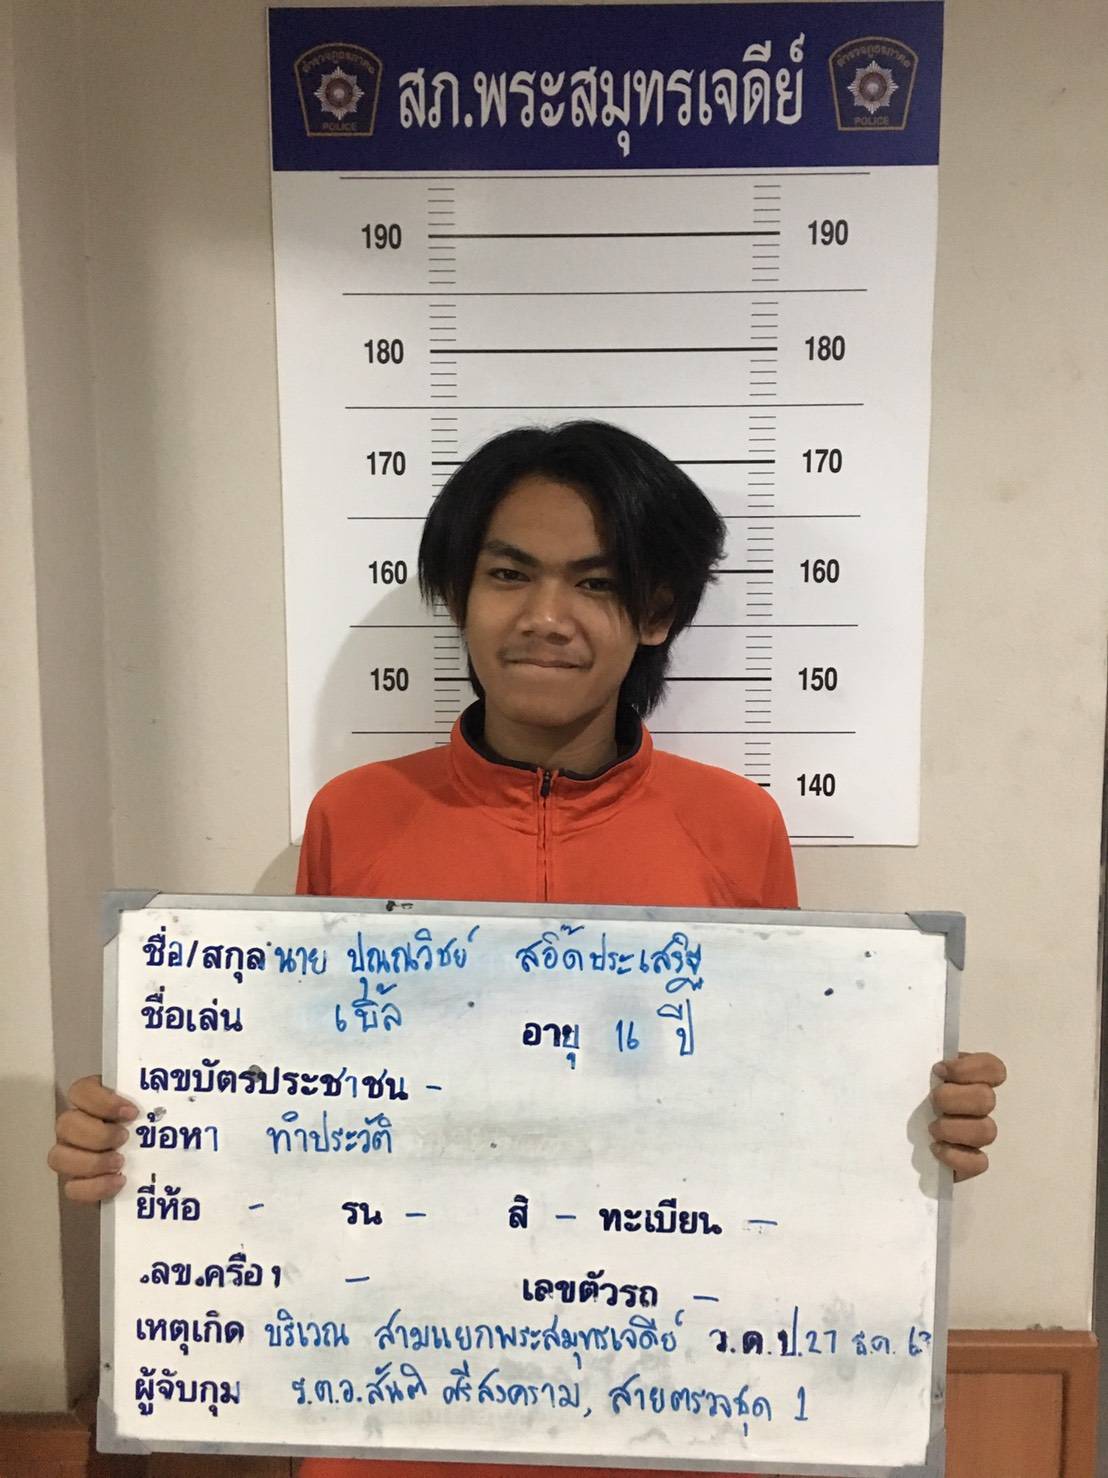 สภ.พระสมุทรเจดีย์
POLICE POLICE
190 190
180 180
170 170
160 160
150 150
140
ชื่อ/สกุล นาย ปุณณวิชย์
ชื่อเล่น เบิ้ล อายุ 16 ปี
เลขบัตรประชาชน -
ข้อหา ทำประวัติ
ยี่ห้อ - รุ่น - สี - ทะเบียน -
เลขเครื่อง - เลขตัวรถ -
เหตุเกิด บริเวณ สามแยกพระสมุทรเจดีย์ ว.ด.ป. 27 ธ.ค. 63
ผู้จับกุม ร.ต.อ.สันติ ศรีสงคราม, สายตรวจชุด 1